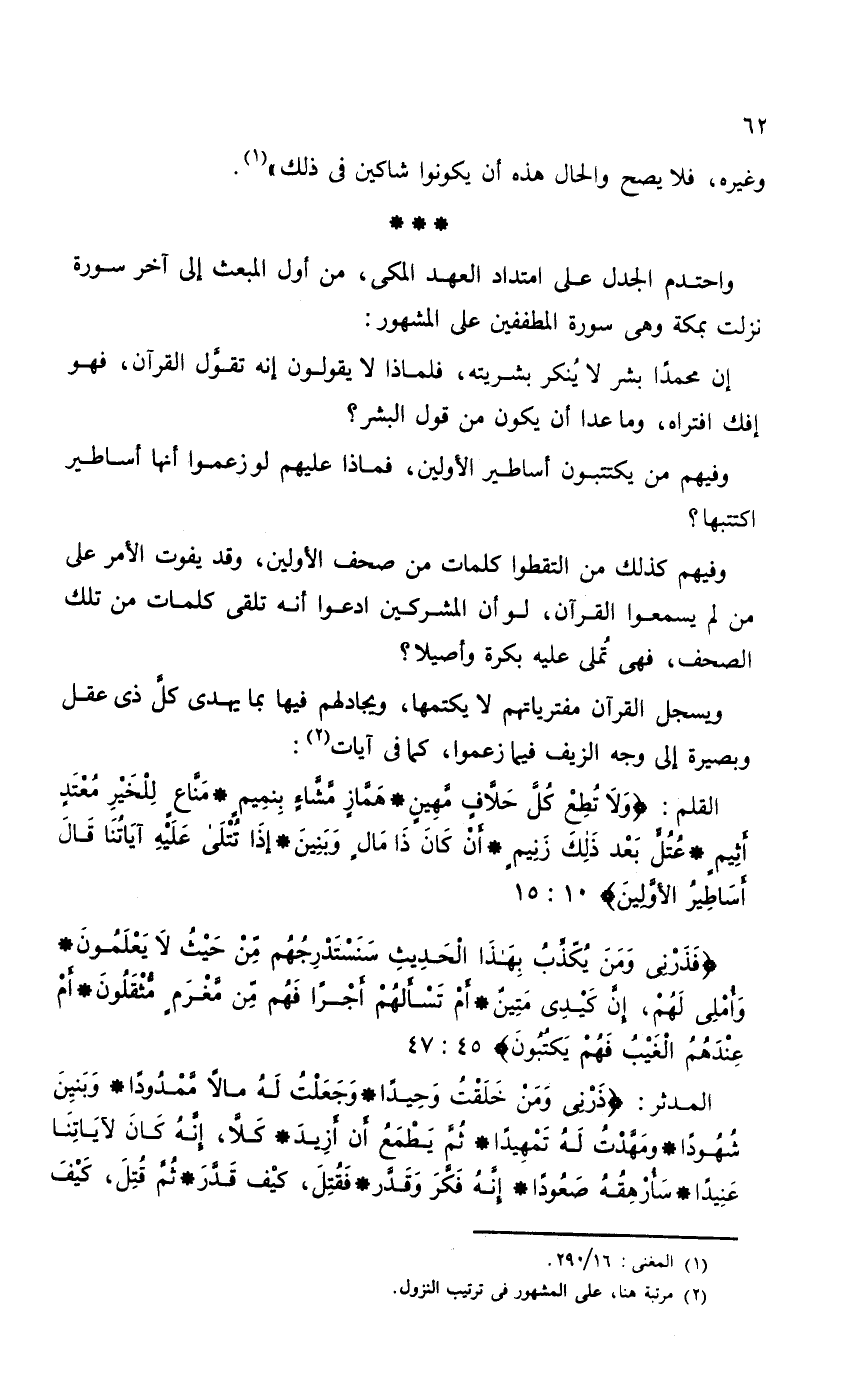 ٦٢
وغيره، فلا يصح والحال هذه أن يكونوا شاكين فى ذلك»(١).
***
واحتدم الجدل على امتداد العهد المكى، من أول المبعث إلى آخر سورة
نزلت بمكة وهى سورة المطففين على المشهور:
إن محمدًا بشر لا يُنكر بشريته، فلماذا لا يقولون إنه تقوَّل القرآن، فهو
إفك افتراه، وما عدا أن يكون من قول البشر؟
وفيهم من يكتتبون أساطير الأولين، فماذا عليهم لو زعموا أنها أساطير
اكتتبها؟
وفيهم كذلك من التقطوا كلمات من صحف الأولين، وقد يفوت الأمر على
من لم يسمعوا القرآن، لو أن المشركين ادعوا أنه تلقى كلمات من تلك
الصحف، فهى تُملى عليه بكرة وأصيلا؟
ويسجل القرآن مفترياتهم لا يكتمها، ويجادلهم فيها بما يهدى كلَّ ذى عقل
وبصيرة إلى وجه الزيف فيما زعموا، كما فى آيات(٢):
القلم: ﴿وَلَا تُطِعْ كُلَّ حَلَّافٍ مَّهِينٍ * هَمَّازٍ مَّشَّاءٍ بِنَمِيمٍ * مَنَّاعٍ لِلْخَيْرِ مُعْتَدٍ
أَثِيمٍ * عُتُلٍّ بَعْد ذَلِكَ زَنِيمٍ * أَنْ كَانَ ذَا مَالٍ وَبَنِينَ * إذَا تُتْلَىٰ عَلَيْهِ آيَاتُنَا قَالَ
أَسَاطِيرُ الأوَّلِينَ﴾ ١٠ : ١٥
﴿فَذَرْنِى وَمَنَ يُكَذِّبُ بِهَـٰذَا الْحَدِيثِ سَنَسْتَدْرِجُهُم مِّنْ حَيْثُ لَا يَعْلَمُونَ *
وَأُمْلِى لَهُمْ، إِنَّ كَيْدِى مَتِينٌ * أَمْ تَسْأَلهُمْ أَجْرًا فَهُم مِّن مَّغْرَمٍ مُّثْقَلُونَ * أَمْ
عِنْدَهُمُ الْغَيْبُ فَهُمْ يَكتُبُونَ﴾ ٤٥ : ٤٧
المدثر: ﴿ذَرْنِى وَمَنْ خَلَقْتُ وَحِيدًا * وَجَعَلْتُ لَهُ مالاً مَّمْدُودًا * وَبَنِينَ
شُهُودًا * ومَهَّدْتُ لَهُ تَمْهِيدًا * ثُمَّ يَطْمَعُ أَن أَزِيدَ * كَلَّا، إِنَّهُ كَانَ لآيَاتِنَا
عَنِيدًا * سَأُرْهِقُهُ صَعُودًا * إِنَّهُ فَكَّرَ وَقَدَّر * فَقُتِلَ، كيْف قَدَّرَ * ثُمَّ قُتِلَ، كَيْفَ
(١) المغنى: ٢٩٠/١٦.
(٢) مرتبة هنا، على المشهور فى ترتيب النزول.